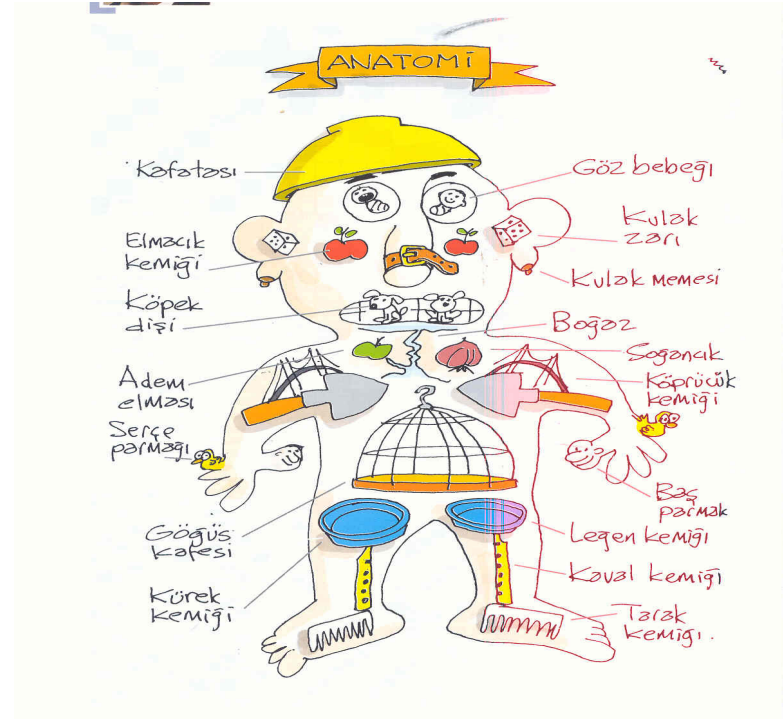 ANATOMİ
Kafatası
Elmacık
kemiği
Köpek
dişi
Adem
elması
Serçe
parmağı
Göğüs
kafesi
Kürek
kemiği
Göz bebeği
Kulak
zarı
Kulak memesi
Boğaz
Soğancık
Köprücük
kemiği
Baş
parmak
Leğen kemiği
Kaval kemiği
Tarak
kemiği.